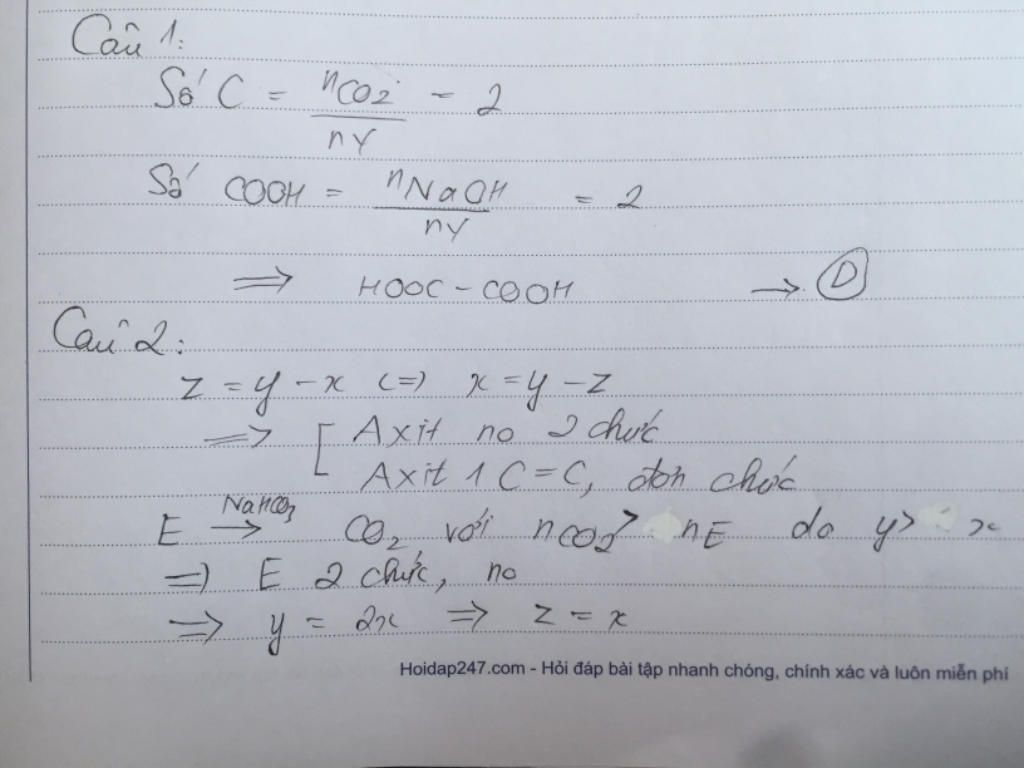 Câu 1:
Số C = nCO2 / nY - 2
Số COOH = nNaOH / nY = 2
⇒ HOOC - COOH → D
Câu 2:
z = y - x (=) x = y - z
⇒ [ Axit no 2 chức
Axit 1 C = C, đơn chức
E NaHCO3 → CO2 với nCO2 > nE do y > x
=) E 2 chức, no
⇒ y = 2x ⇒ z = x
Hoidap247.com - Hỏi đáp bài tập nhanh chóng, chính xác và luôn miễn phí